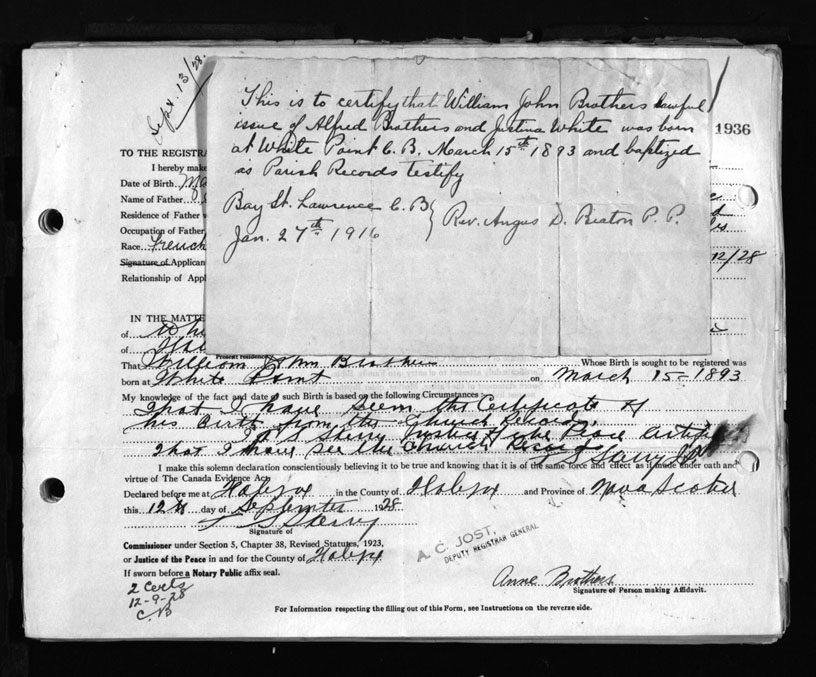 Sept. 13/28.
This is to certify that William John Brothers lawful
issue of Alfred Brothers and Justina White was born
at White Point C. B. March 15th 1893 and baptized
as Parish Records testify
Bay St. Lawrence C. B. } Rev. Angus D. Beaton P. P.
Jan. 27th 1916
1936
TO THE REGISTRA
I hereby make
Date of Birth. Ma
Name of Father
Residence of Father
Occupation of Father
Race French
Signature of Applicant 12/28
Relationship of Appl
IN THE MATTE
of Whi
of
Present residence
That William John Brothers Whose Birth is sought to be registered was
born at White Point on March 15 - 1893
My knowledge of the fact and date of such Birth is based on the following Circumstances:
That I have Seem the Certificate of
his Birth from the Church Records.
Sherry Justice of the Peace Certify
That I have See the Church Record
I make this solemn declaration conscientiously believing it to be true and knowing that it is of the same force and effect as if made under oath and
virtue of The Canada Evidence Act.
Declared before me at Halifax in the County of Halifax and Province of Nova Scotia
this 12th day of September 1928
Sherry
Signature of
Commissioner under Section 5, Chapter 38, Revised Statutes, 1923,
or Justice of the Peace in and for the County of Halifax
If sworn before a Notary Public affix seal.
A. C. JOST,
DEPUTY REGISTRAR GENERAL
2 Certs
12-9-28
C.B
Anne Brothers
Signature of Person making Affidavit.
For Information respecting the filling out of this Form, see Instructions on the reverse side.